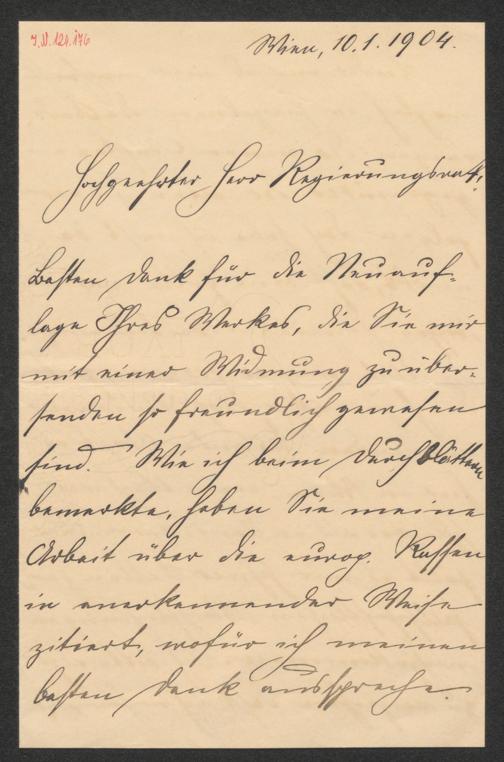 I.N. 124.176
Wien, 10.1.1904.
Hochgeehrter Herr Regierungsrat!
Besten Dank für die Neuauf-
lage Ihres Werkes, die Sie mir
mit einer Widmung zu über-
senden so freundlich gewesen
sind. Wie ich beim Durchblättern
bemerkte, haben Sie meine
Arbeit über die europ. Rassen
in anerkennender Weise
zitiert, wofür ich meinen
besten Dank ausspreche.